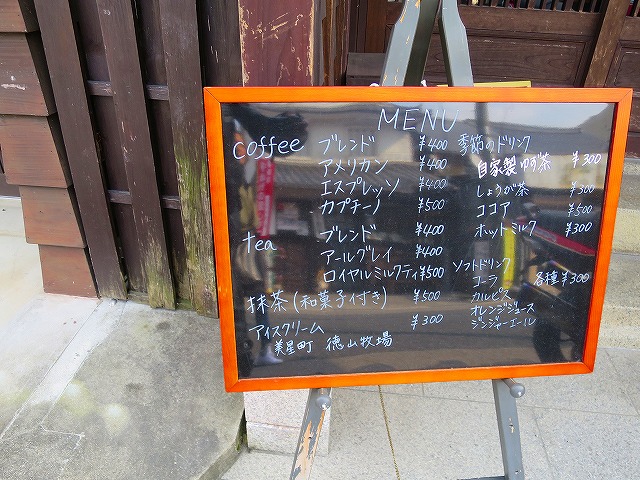 MENU
coffee ブレンド ¥400
アメリカン ¥400
エスプレッソ ¥400
カプチーノ ¥500
tea ブレンド ¥400
アールグレイ ¥400
ロイヤルミルクティ ¥500
抹茶(和菓子付き) ¥500
アイスクリーム ¥300
美星町 徳山牧場
季節のドリンク
自家製ゆず茶 ¥300
しょうが茶 ¥300
ココア ¥500
ホットミルク ¥300
ソフトドリンク
コーラ 各種¥300
カルピス
オレンジジュース
ジンジャーエール